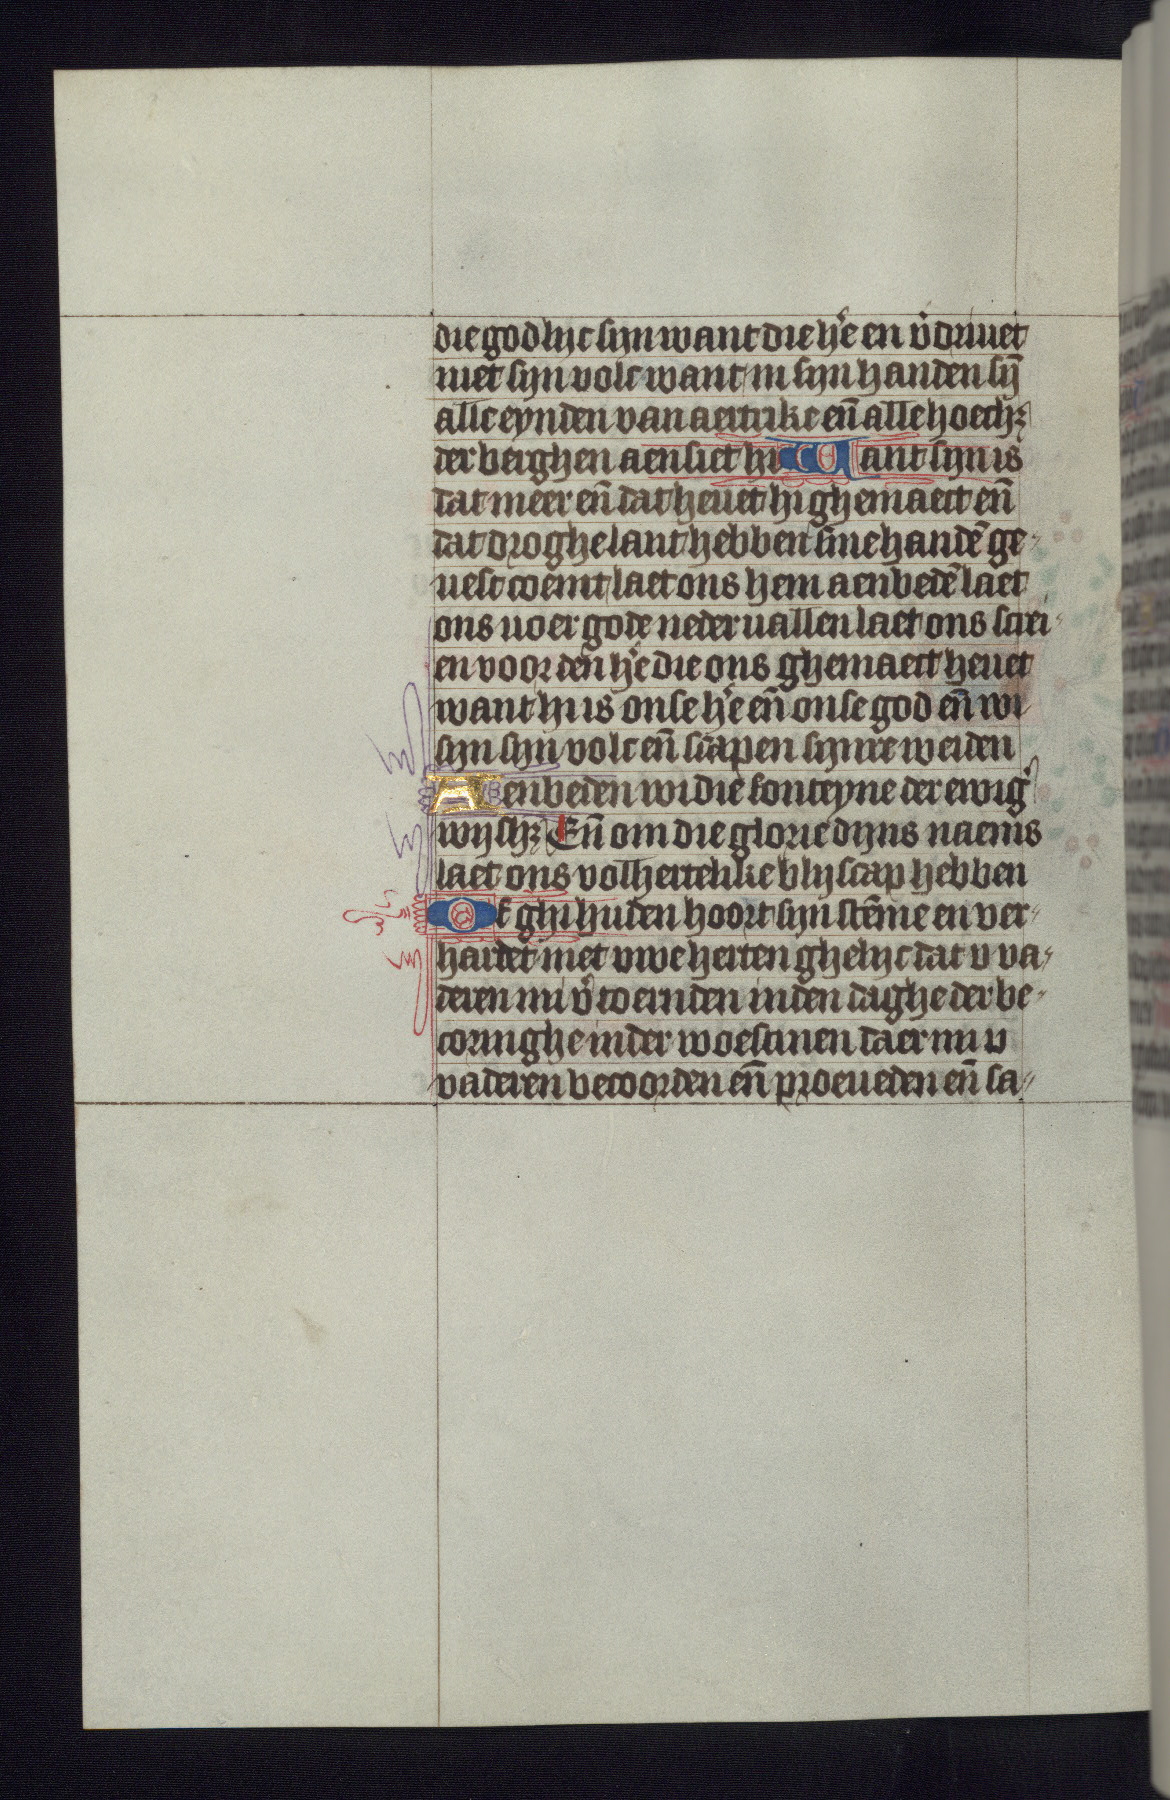 die godlyc syn want die hr̄e en v̓driuet
niet syn volc want in syn handen sȳ
alle eynden van aertrike en̄ alle hoechꝫ
der berghen aensiet hi Want syn is
dat meer en̄ dat heuet hi ghemaect en̄
dat droghe lant hebben sine handē ge-
uest coemt laet ons hem aenbedē laet
ons uoer gode neder uallen laet ons screi-
en voor den hr̄e die ons ghemaect heuet
want hi is onse hr̄e en̄ onse god en̄ wi
syn syn volc en̄ scapen synre weiden
Aenbeden wi die fonteyne der ewig̓
wyshꝫ En̄ om die glorie dyns naems
laet ons volhertelike blyscap hebben
Of ghi huden hoort syn stēme en ver-
hardet niet uwe herten ghelyc dat u va-
deren mi v̓toernden inden daghe der be-
coringhe inder woestinen daer mi u
vaderen becoorden en̄ proeueden en̄ sa-